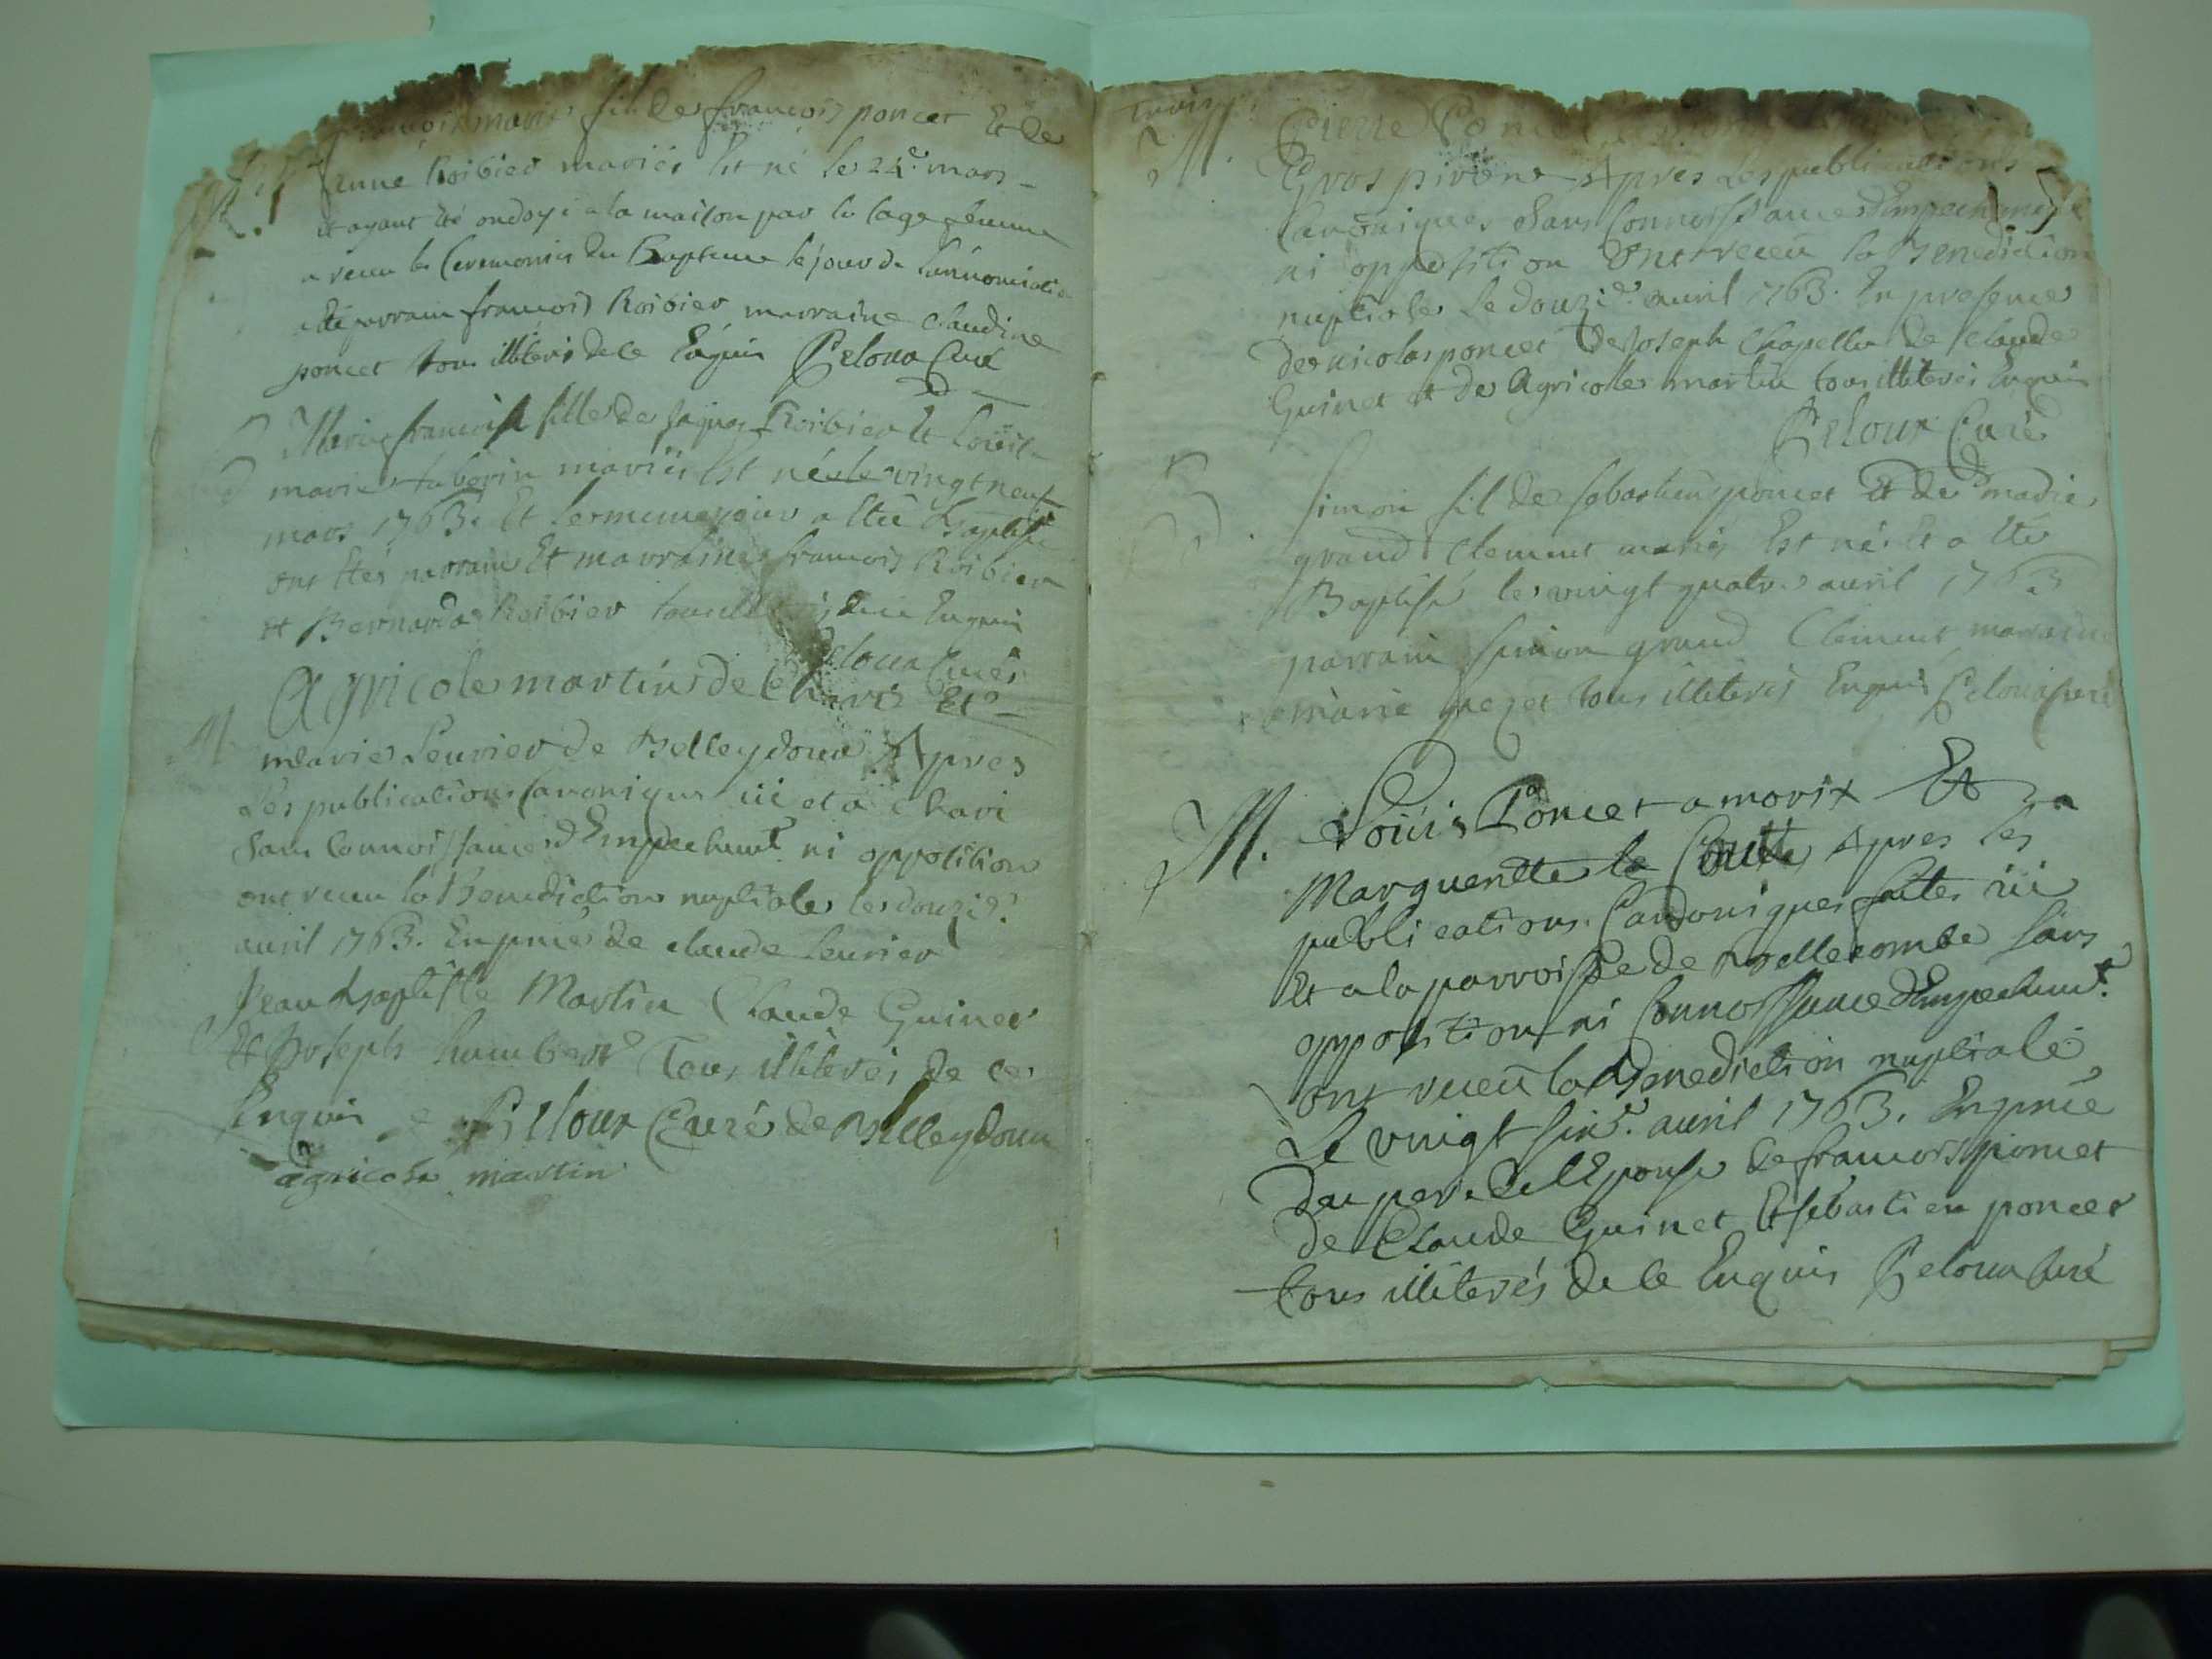 marie fils de françois poncet Et de
anne Roibier mariés Est né le 24e. mars
et ayant été ondoyé a la maison par la sage femme
a recu les Ceremonies du Bapteme le jour de
parrain francois Roibier marraine Claudine
poncet tous illiterés de ce Enquis Peloux Curé
Marie francoise fille de Roibier Et
marie taborin mariés Est née le vingt neuf
mars 1763. Et le meme jour a été Baptisée
ont étés parrain Et marraine francois Roibier
et Bernarda Roibier Enquis
Peloux Curé
M Agricole martin de Charis Et
marie Leurier de Belleydoux Apres
Les publications Canoniques ici et a Chari
Sans Connoissance d'Empechemt. ni opposition
ont recu la Benediction nuptiale le douzie.
avril 1763. En pnce de claude Leurier
Jean Baptiste Martin Claude Guinet
Et Joseph humbert Tous illiterés de ce
Enquis Peloux Curé de Belleydoux
agricole martin
Trois
M. Pierre Poncet
Gros pirone Apres Les publications
Canoniques Sans Connoissance d'Empechement
ni opposition Ont receu la Benediction
nuptiale Le douzie. avril 1763. En presence
de nicolas poncet De Joseph Chapellu de Claude
Guinet et de Agricole martin tous illiterés Enquis
Peloux Curé
B Simon fils de sebastien poncet Et de marie
grand Clement mariés Est né Et a été
Baptisé le vingt quatre avril 1763
parrain simon grand Clement marraine
marie tous illiterés Enquis Peloux Curé
M. Loüis Poncet a morix Et
Margueritte la Coutte Apres les
publications Canoniques faites ici
Et a la parroisse de Bellecombe sans
opposition ni Connoissance d'Empechemt.
ont receu la Benediction nuptiale
Le vingt sixe. avril 1763. En pnce
du pere de l'Epouse de francois poncet
de Claude Guinet Et sebastien poncet
tous illiterés de ce Enquis Peloux Curé